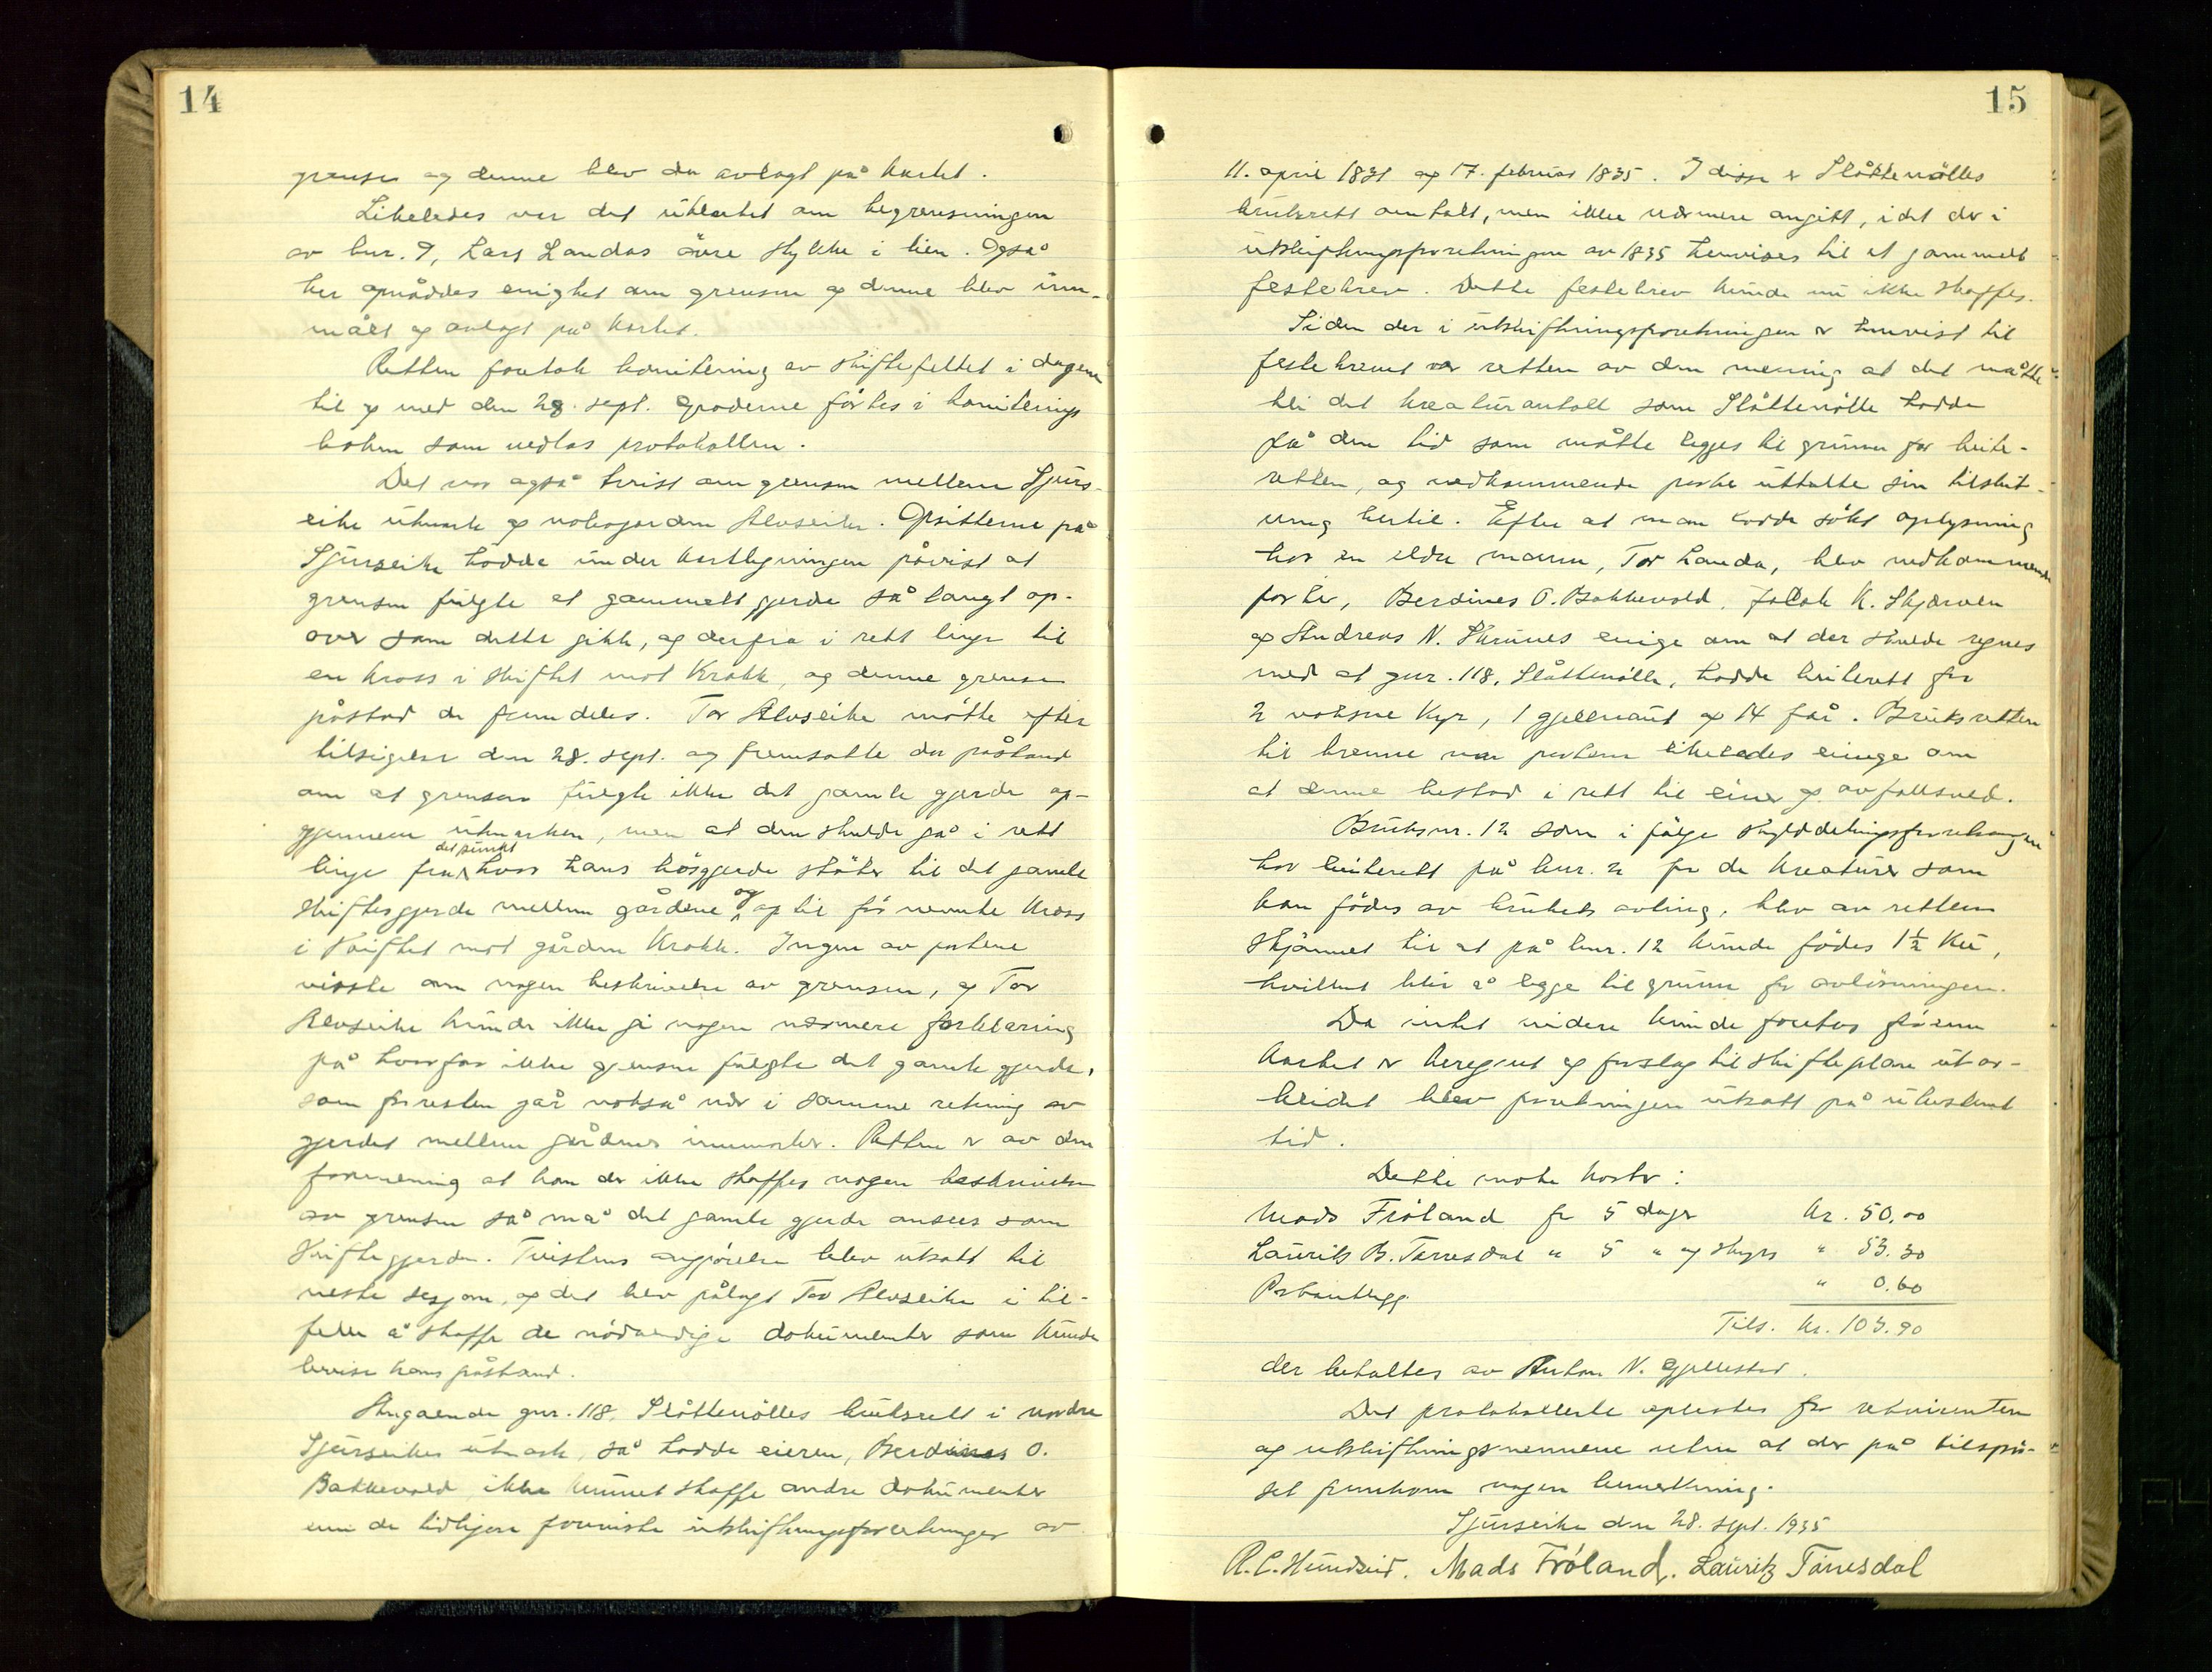 14
grensen og denne blev da avlagt på kartet.
Likeledes var det uklarhet om begrensningen
av bnr. 9, Lars Landas övre stykke i lien. Også
her opnåddes enighet om grensen og denne blev inn-
målt og avlagt på kartet.
Retten foretok bonitering av skiftefeltet i dagene
til og med den 28. sept. Graderne förtes i boniterings
boken som vedlas protokollen.
Det var også tvist om grensen mellem Sjurs-
eike utmark og nabogarden Alvseike. Opsitterne på
Sjurseike hadde under kartlegningen påvist at
grensen fulgte et gammelt gjerde så langt op-
over som dette gikk, og derfra i rett linje til
en kross i skiftet mot Krakk, og denne grense
påstod de fremdeles. Tor Alvseike mötte efter
tilsigelse den 28. sept. og fremsatte da påstand
om at grensen fulgte ikke det gamle gjerde op-
gjennem utmarken, men at den skulde gå i rett
linje fra det punkt hvor hans hösgjerde stöter til det gamle
skiftesgjerde mellem gårdene og op til för nevnte kross
i skiftet mot gården Krakk. Ingen av partene
visste om nogen beskrivelse av grensen, og Tor
Alvseike kunde ikke gi nogen nærmere forklaring
på hvorfor ikke grensen fulgte det gamle gjerde,
som forresten går notså nær i samme retning av
gjerdet mellem gårdenes innmarker. Retten er av den
formening at kan der ikke skaffes nogen beskrivelse
av grensen så må det gamle gjerde ansees som
skiftegjerde. Tvistens avgjörelse blev utsatt til
neste sesjon, og det blev pålagt Tor Alvseike i til-
felle å skaffe de nödvendige dokumenter som kunde
bevise hans påstand.
Angaende gnr. 118, Slåttenölles bruksrett i nordre
Sjurseikes utmark, så hadde eieren, Berdines O.
Bakkevold ikke kunnet skaffe andre dokumenter
enn de tidligere foreviste utskiftningsforretninger av
15
11. april 1831 og 17. februar 1835. I disse er Slåttenölles
bruksrett omtalt, men ikke nærmere angitt, idet der i
utskiftningsforretningen av 1835 henvises til et gammelt
festebrev. Dette festebrev kunde nu ikke skaffes.
Siden der i utskiftningsforretningen er henvist til
festebrevet var retten av den mening at det måtte
bli det kreaturantall som Slåttenölle hadde
på den tid som måtte legges til grunn for beite-
retten, og vedkommende parter uttalte sin tilslut-
ning hertil. Efter at man hadde sökt oplysning
hos en eldre mann, Tor Landa, blev vedkommende
parter, Berdines O. Bakkevold, Jakob K. Skjærven
og Andreas N. Skrunes enige om at der skulde regnes
med at gnr. 118, Slåttenölle, hadde beiterett for
2 voksne kyr, 1 gjellnaut og 14 får. Bruksretten
til brenne var partene likeledes enige om
at denne bestod i rett til einer og avfallsved.
Bruksnr. 12 som i fölge skylddelingsforretningen
har beiterett på bnr. 2 for de kreaturer som
kan födes av brukets avling, blev av retten
skjönnet til at på bnr. 12 kunde födes 1½ ku,
hvilket blir å legge til grunn for avlösningen.
Da intet videre kunde foretas för enn
kartet er beregnet og forslag til skifteplan utar-
beidet blev forretningen utsatt på ubestemt
tid.
Dette möte koster:
Mads Fröland for 5 dager kr. 50,00
Lauritz B. Tarresdal " 5 " og skyss " 53.30
Portoutlegg " 0.60
Tils. kr. 103.90
der betaltes av Anton N. Gjellestad.
Det protokollerte oplestes for rekvirenten
og utskiftningsmennene uten at der på tilspör-
sel fremkom nogen bemerkning.
Sjurseike den 28. sept. 1935
R. C. Hundseid. Mads Fröland. Lauritz Tarresdal